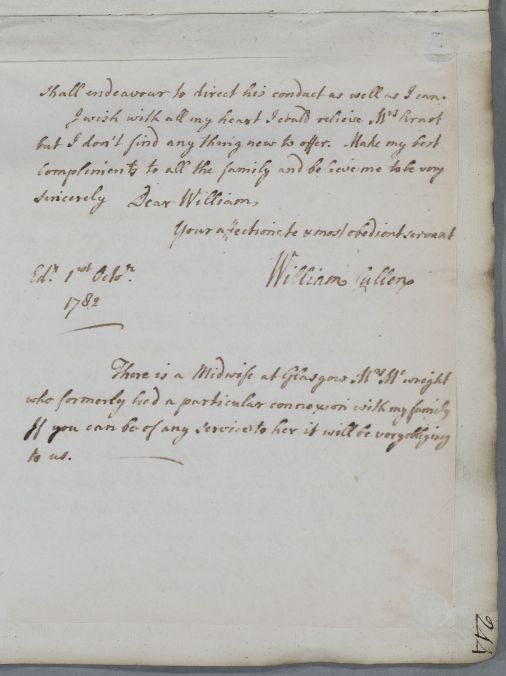 shall endeavour to direct his conduct as well as I can.
I wish with all my heart I could relieve Mrs Arnot
but I don't find any thing new to offer. Make my best
compliments to all the family and believe me to be very
sincerely Dear William,
Your affectionate & most obedient servant
Edr. 1st Octor.
William Cullen
1782
There is a Midwife at Glasgow Mrs Mc wright
who formerly had a particular connexion with my family
If you can be of any service to her it will be very obliging
to us.
244